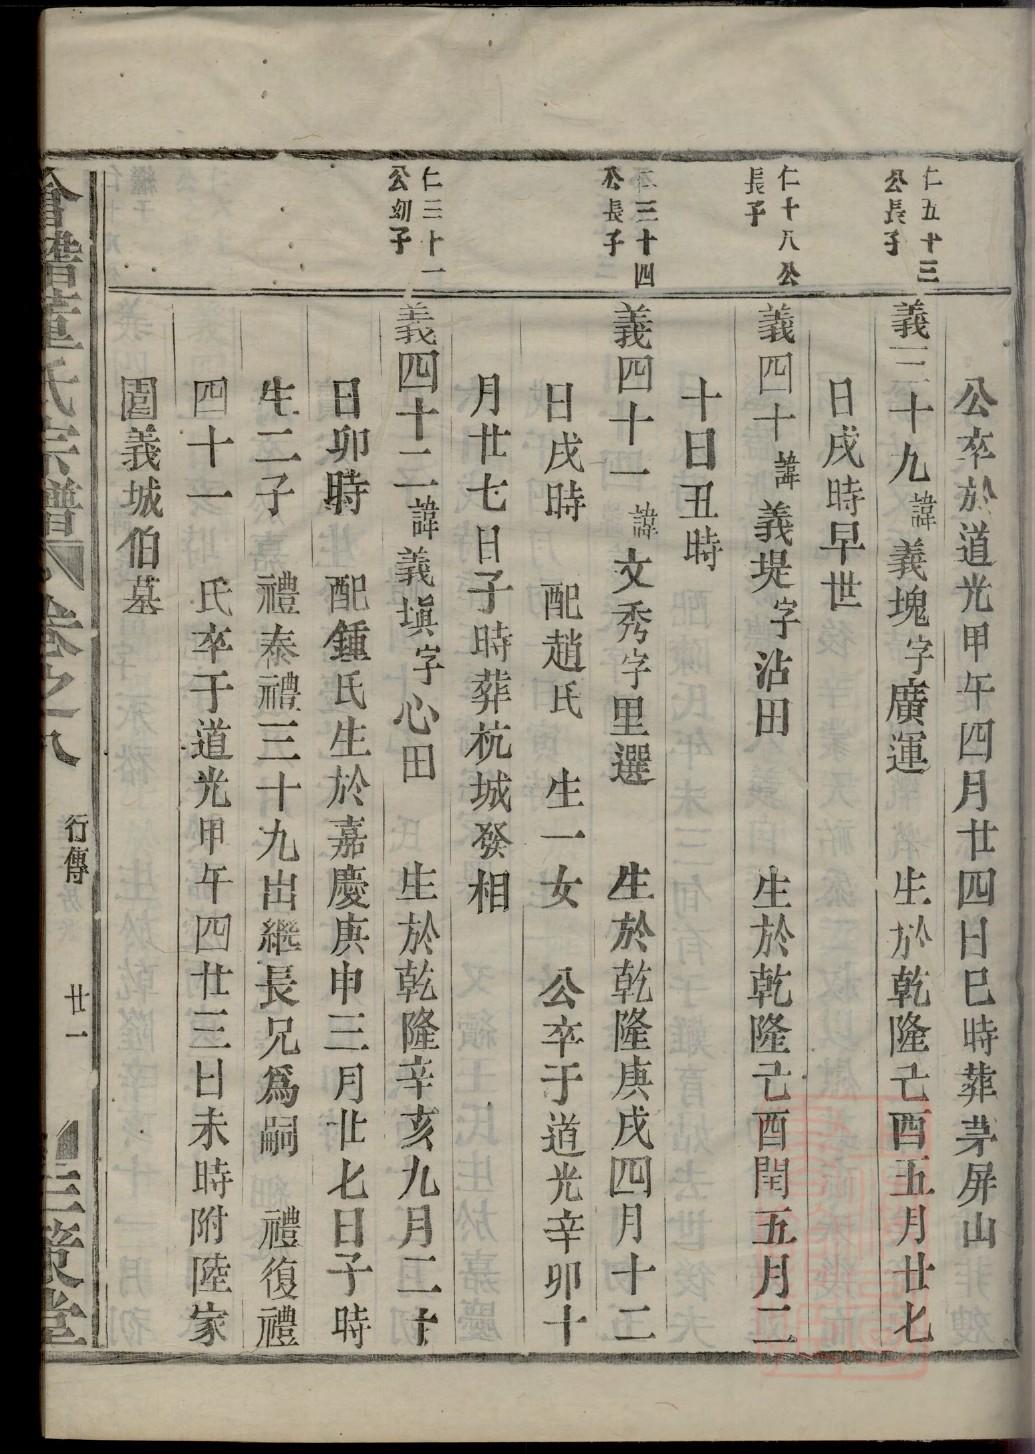 公卒於道光甲午四月廿四日巳時葬茅屏山
仁五十三
公長子
義三十九諱義塊字廣運 生於乾隆己酉五月廿七
日戌時早世
仁十八公
長子
義四十諱義堤字沾田 生於乾隆己酉閏五月二
十日丑時
仁三十四
公長子
義四十一諱文秀字里選 生於乾隆庚戌四月十二
日戌時 配趙氏 生一女 公卒于道光辛卯十
月廿七日子時葬杭城發相
仁三十一
公幼子
義四十二諱義塡字心田 生於乾隆辛亥九月二十
日卯時 配鍾氏生於嘉慶庚申三月廿七日子時
生二子 禮泰禮三十九出繼長兄爲嗣 禮復禮
四十一 氏卒于道光甲午四廿三日未時附陸家
園義城伯墓
會稽董氏宗譜 卷之八 行傳 廿一 三策堂